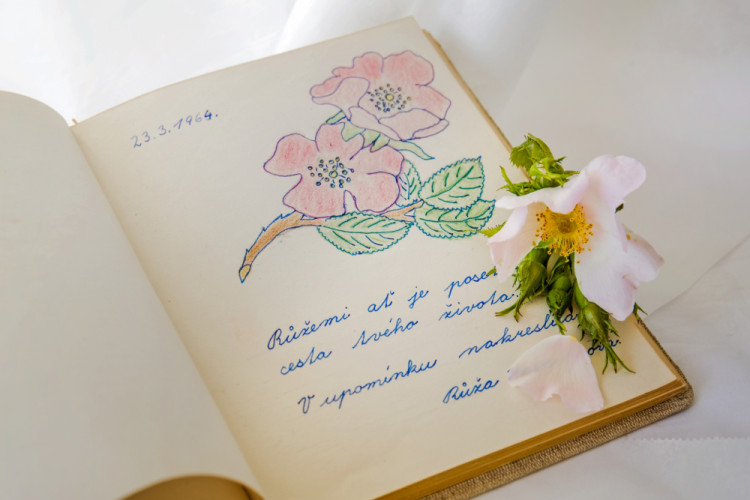 23.3.1964.
Růžemi ať je
cesta tvého života
V upomínku nakreslila
Růža